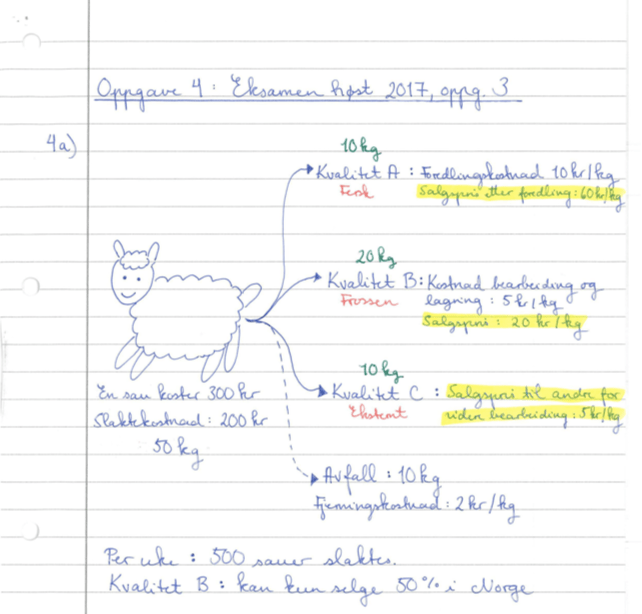 Oppgave 4 : Eksamen høst 2017, oppg. 3
4a)
10 kg
Kvalitet A : Foredlingskostnad 10 kr/kg
Fersk
Salgspris etter foredling : 60 kr/kg
20 kg
Kvalitet B : Kostnad bearbeiding og
Frossen
lagring : 5 kr/kg
Salgspris : 20 kr/kg
10 kg
Kvalitet C : Salgspris til andre for
Eksternt
videre bearbeiding : 5 kr/kg
En sau koster 300 kr
Slaktekostnad : 200 kr
50 kg
Avfall : 10 kg
Fjerningskostnad : 2 kr/kg
Per uke : 500 sauer slaktes.
Kvalitet B : kan kun selge 50% i Norge